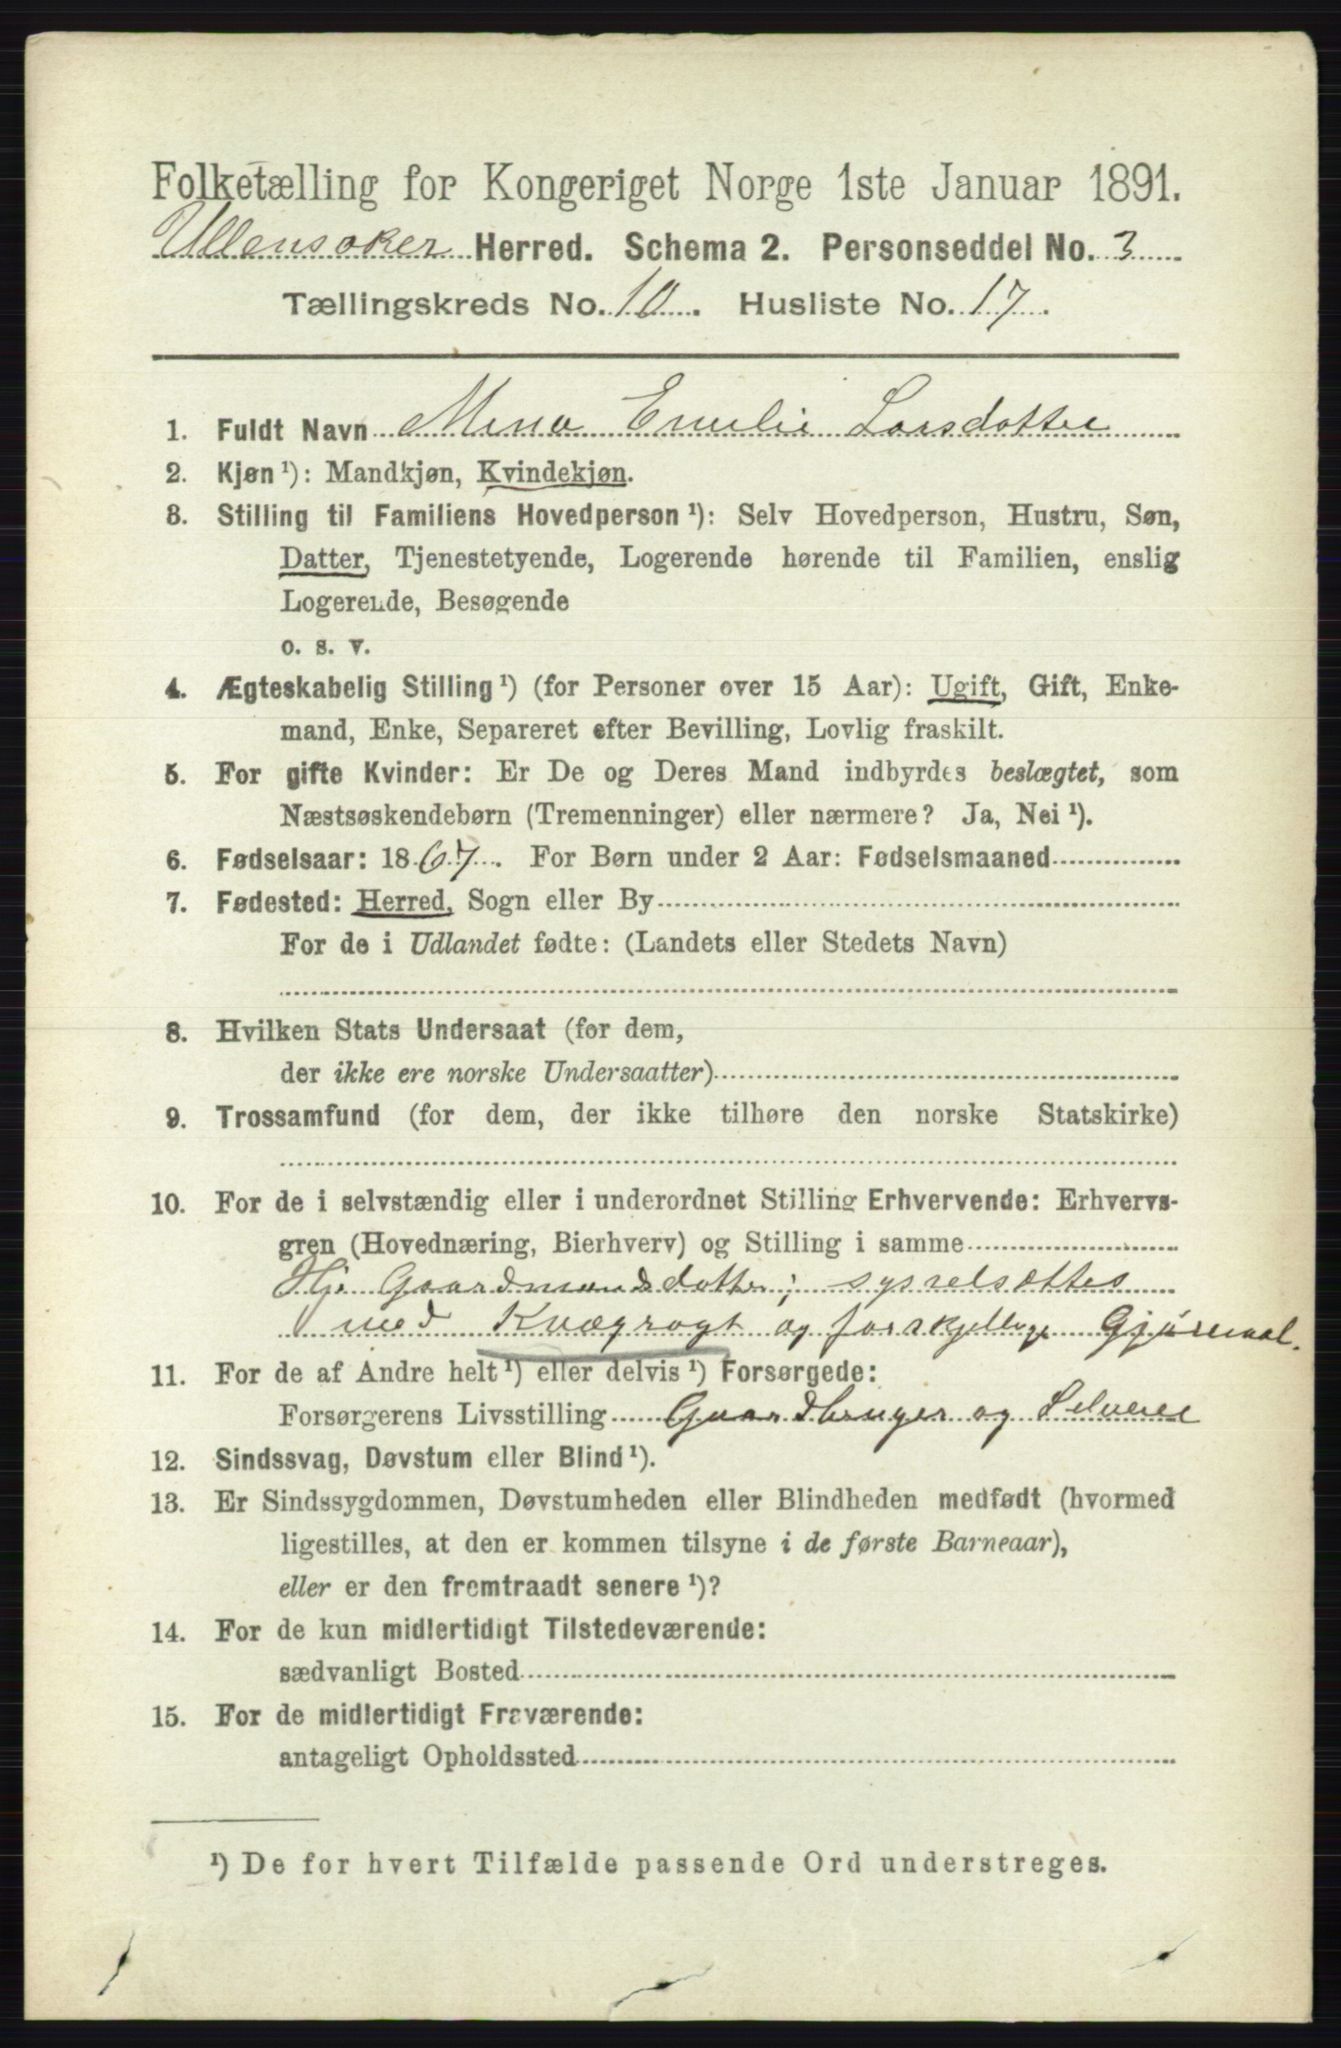 Folketælling for Kongeriget Norge 1ste Januar 1891.
Ullensaker Herred. Schema 2. Personseddel No. 3
Tællingskreds No. 10. Husliste No. 17.
1. Fuldt Navn Mina Emilie Larsdotter
2. Kjøn ¹): Mandkjøn, Kvindekjøn.
3. Stilling til Familiens Hovedperson ¹): Selv Hovedperson, Hustru, Søn,
Datter, Tjenestetyende, Logerende hørende til Familien, enslig
Logerende, Besøgende
o. s. v.
4. Ægteskabelig Stilling ¹) (for Personer over 15 Aar): Ugift, Gift, Enke-
mand, Enke, Separeret efter Bevilling, Lovlig fraskilt.
5. For gifte Kvinder: Er De og Deres Mand indbyrdes beslægtet, som
Næstsøskendebørn (Tremenninger) eller nærmere? Ja, Nei ¹).
6. Fødselsaar: 1867. For Børn under 2 Aar: Fødselsmaaned
7. Fødested: Herred, Sogn eller By
For de i Udlandet fødte: (Landets eller Stedets Navn)
8. Hvilken Stats Undersaat (for dem,
der ikke ere norske Undersaatter)
9. Trossamfund (for dem, der ikke tilhøre den norske Statskirke)
10. For de i selvstændig eller i underordnet Stilling Erhvervende: Erhvervs-
gren (Hovednæring, Bierhverv) og Stilling i samme
Hj. Gaardmandsdotter; sysselsættes
med Kvægrøgt og forskjellige Gjøremaal.
11. For de af Andre helt ¹) eller delvis ¹) Forsørgede:
Forsørgerens Livsstilling Gaardbruger og Selveier
12. Sindssvag, Døvstum eller Blind ¹).
13. Er Sindssygdommen, Døvstumheden eller Blindheden medfødt (hvormed
ligestilles, at den er kommen tilsyne i de første Barneaar),
eller er den fremtraadt senere ¹)?
14. For de kun midlertidigt Tilstedeværende:
sædvanligt Bosted
15. For de midlertidigt Fraværende:
antageligt Opholdssted
¹) De for hvert Tilfælde passende Ord understreges.